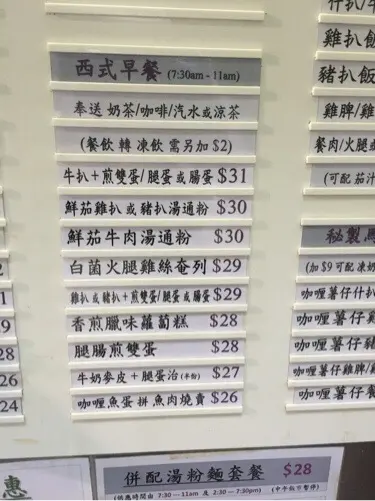 西式早餐 (7:30am - 11am)
奉送 奶茶/咖啡/汽水或涼茶
(餐飲 轉 凍飲 需另加 $2)
牛扒＋煎雙蛋/腿蛋或腸蛋 $31
鮮茄雞扒 或 豬扒湯通粉 $30
鮮茄牛肉湯通粉 $30
白菌火腿雞絲奄列 $29
雞扒 或 豬扒＋煎雙蛋/腿蛋或腸蛋 $29
香煎臘味蘿蔔糕 $28
腿腸煎雙蛋 $28
牛奶麥皮＋腿蛋治(半份) $27
咖喱魚蛋拼魚肉燒賣 $26
併配湯粉麵套餐 $28
(供應時間由 7:30 — 11am 及 2:30 — 7:30pm)
(中午飯市暫停)
雞扒飯
豬扒飯
雞脾/雞
餐肉/火腿
(可配 茄汁
秘製
(加 $9 可配凍
咖喱薯仔什扒
咖喱薯仔牛
咖喱薯仔雞
咖喱薯仔豬
咖喱薯仔雞脾/雞
咖喱薯仔餐
28
26
24
惠